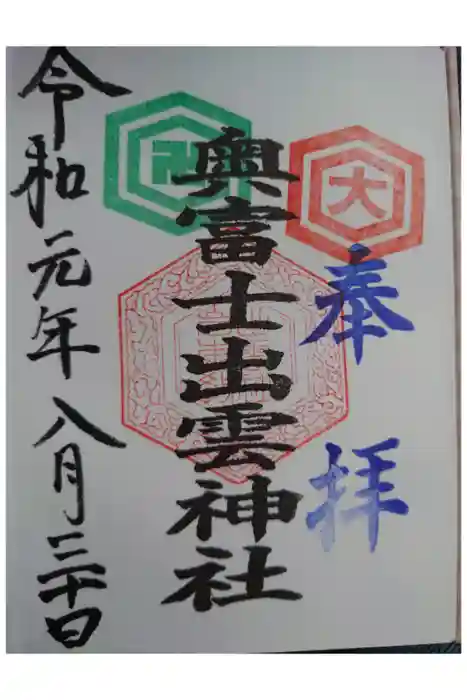 奉拝
大
奥富士出雲神社
令和元年八月三十日